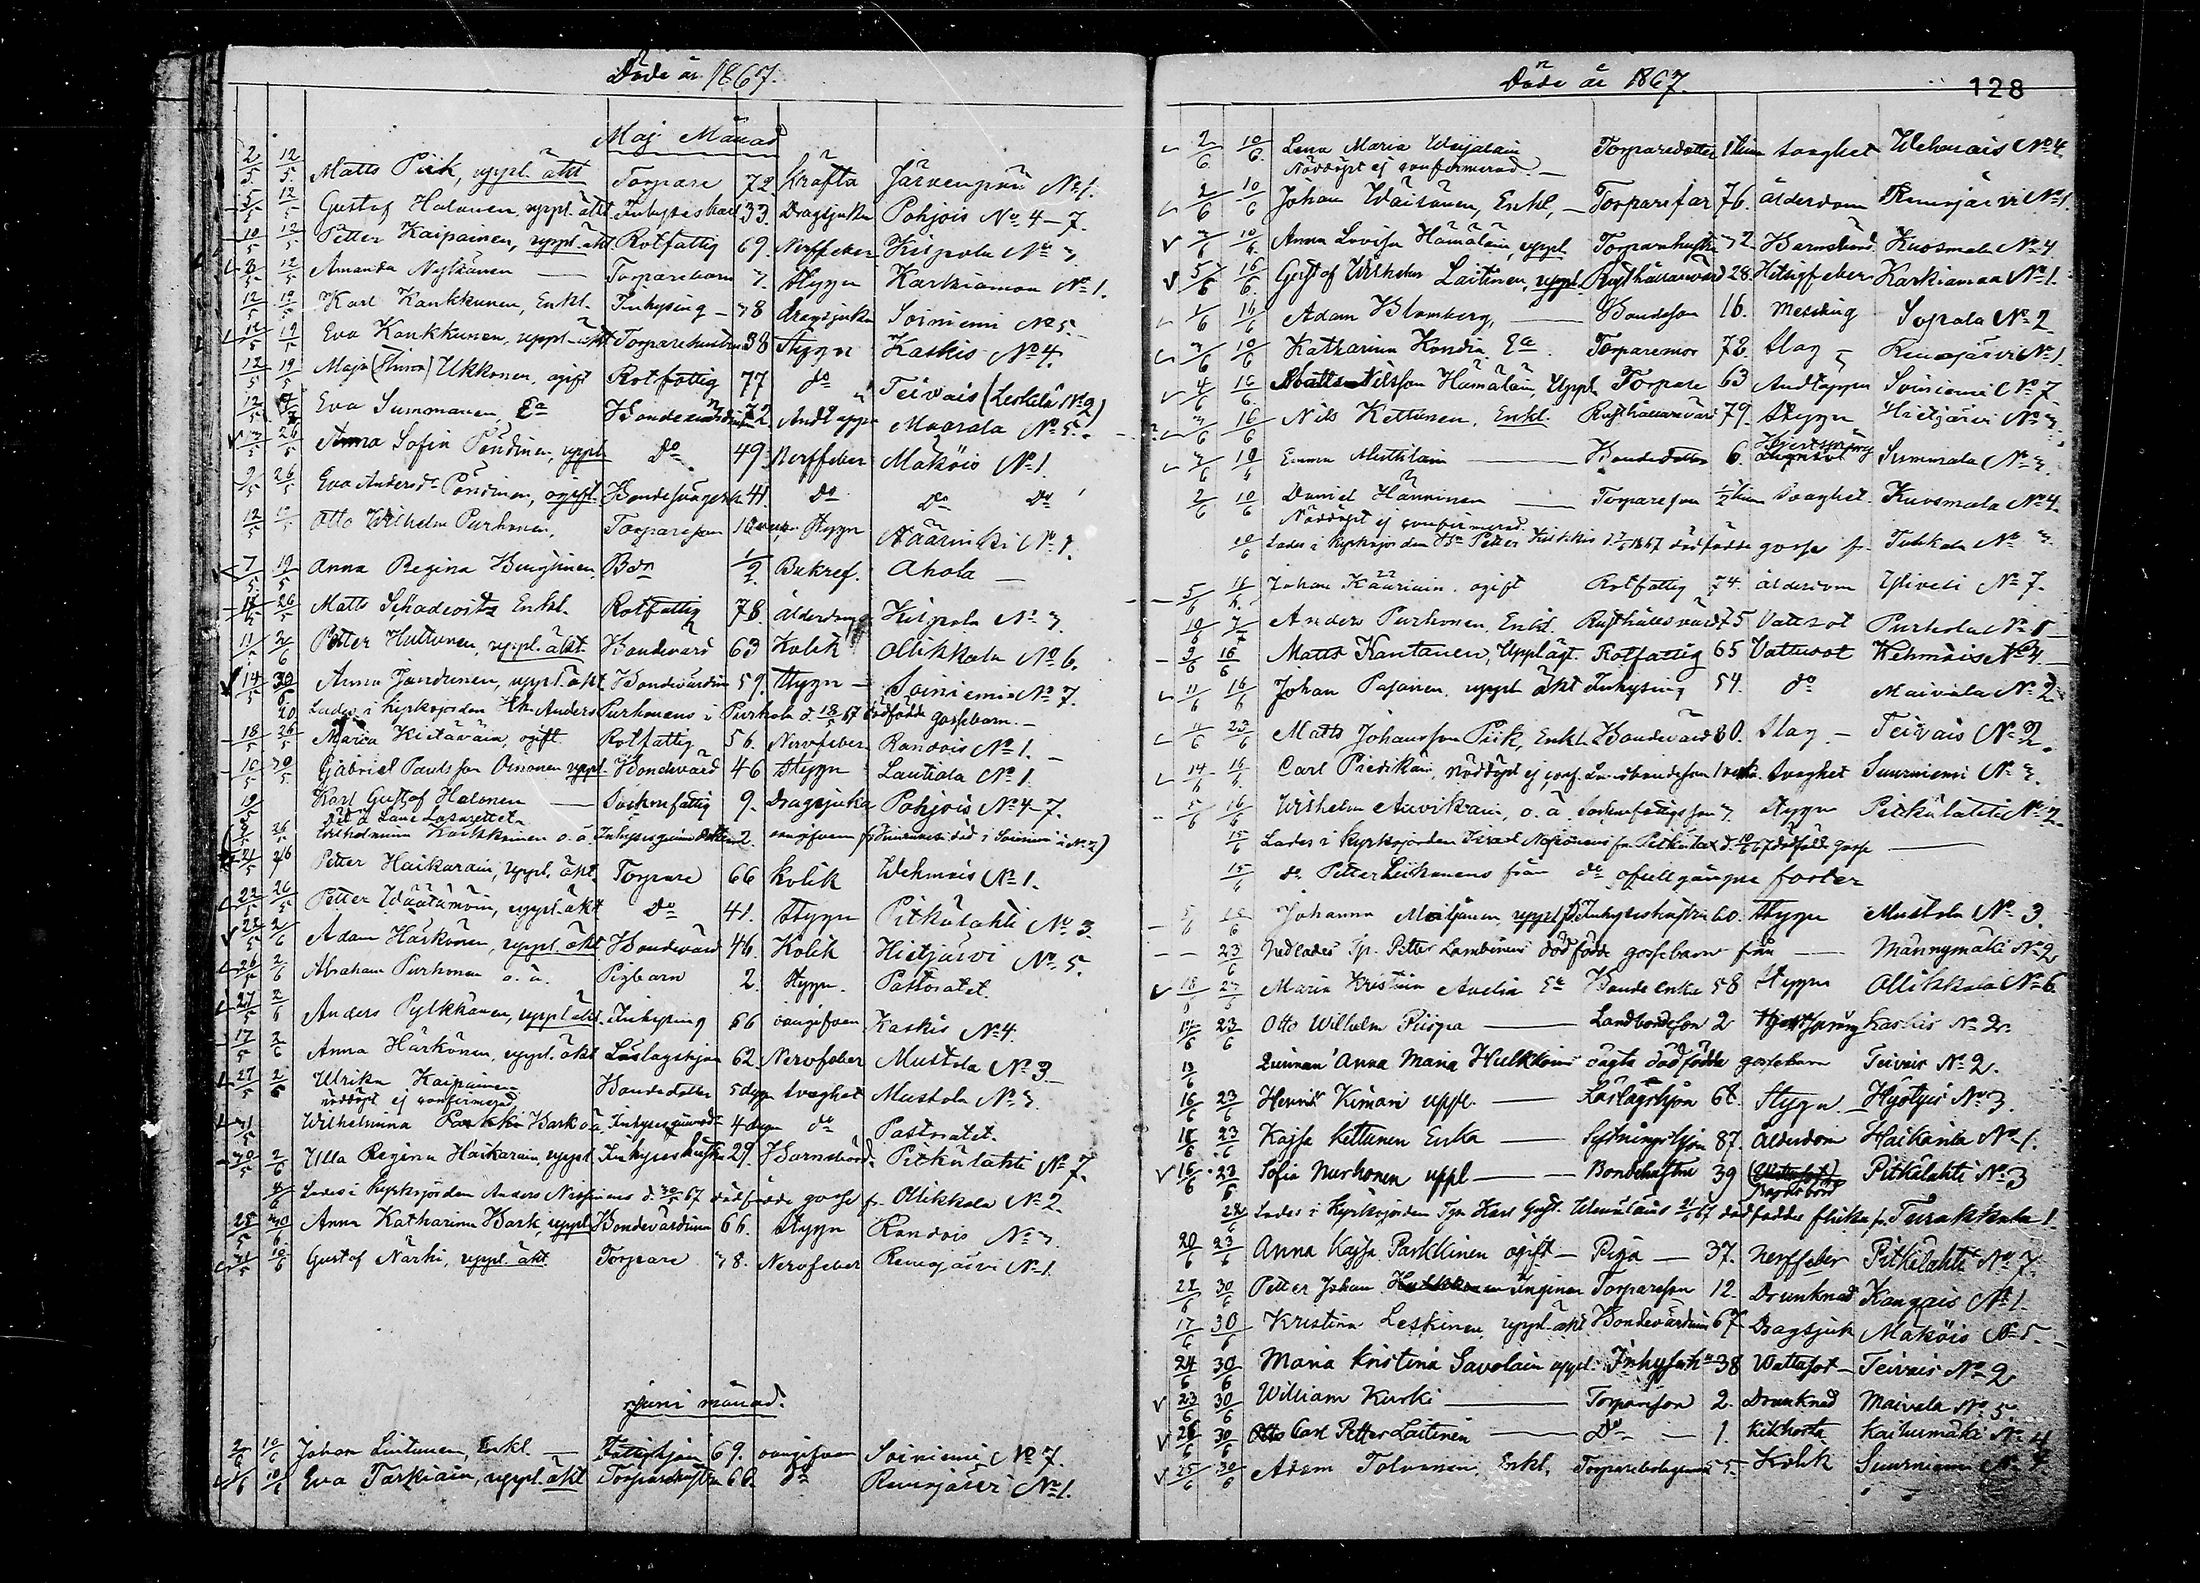 Döde år 1867.
Maj Månad
2/5 12/5 Matts Piik, uppl. äkt Torpare 72 kräfta Järvenpää No 1.
5/5 12/5 Gustaf Halonen, uppl. äkt Inhyseskarl 33. Dragsjuka Pohjois No 4-7.
10/5 12/5 Petter Kaipainen, uppl. äkt Rotfattig 69. Nerffeber Kilpola No 3
12/5 Amanda Torparebarn 7. Stygn Karkiamaa No 1.
12/5 19/5 Karl Kankkunen, Enkl. Inhysing 78 dragsjuka Soiniemi No 5
12/5 19/5 Eva Kankkunen, uppl. äkt Torparehustru 38 Stygn Kaskis No 4.
12/5 19/5 Maja Ukkonen, ogift Rotfattig 77 do Teivais (Leskelä No 2)
12/5 Eva Summanen Ea 72 Andtäppa Maarala No 5.
26/5 Anna Sofia Pöndinen, uppl. do 49 Nerffeber Mäköis No 1
9/5 26/5 Eva Andersdr Pöndinen, ogift 41. do do do
12/5 19/5 Otto Wilhelm Purhonen, Torpareson 10 Stygn Näärinki No 1.
7/5 19/5 Anna Regina Barn 1/2 Bukref. Ahola
26/5 Matts Schadewitz Enkl. Rotfattig 78. ålderdom Kilpola No 3
11/5 2/6 Petter Huttunen, uppl. äkt. Bondevärd 63 Kolik Ollikkala No 6.
14/5 30/5 Anna Pöndinen, uppl. äkt Bondevärdinna 59. Stygn Soiniemi No 7.
20 Lades i kyrkojorden Anders Purhonens i Purhola d. 18/5 67 dödfödde gossebarn.
18/5 26/5 Maria Kietäväin, ogift Rotfattig 56. Nervfeber Randois No 1.
16/5 30/5 Gabriel Paulsson Oinonen uppl. Bondevärd 46 Stygn Lautiala No 1.
19/5 Karl Gustaf Halonen Socknefattig 9. Dragsjuka Pohjois No 4-7.
Död å Läne Lasarettet
26/5 Wilhelmina Karkkinen o. ä. 2. oangifven
21/5 Petter Haikarain, uppl. äkt. Torpare 66 kolik Wehmais No 1.
22/5 26/5 Petter Wäätämöin, uppl. äkt do 41. Stygn Pitkälahti No 3.
22/5 2/6 Adam Härkönen, uppl. äkt Bondevärd 46. Kolik Hietjärvi No 5.
26/5 2/6 Abraham Purhonen o. ä. Pigbarn 2. Stygn. Pastoratet.
27/5 2/6 Anders Pylkkänen, uppl. äkt. Inhysing 66 oangifven Kaskis No 4.
17/5 2/6 Anna Härkönen, uppl. äkt Låslagshjon 62. Nervfeber Mustola No 3
27/5 2/6 Ulrika Kaipainen Bondedotter 5 dygn svaghet Mustola No 3.
nöddöpt ej confirmerad
31/5 Wilhelmina Bark o ä 4 dygn do Pastoratet.
30/5 2/6 Ulla Regina Haikarain, uppl. Inhyseshustru 29. Barnsbörd. Pitkälahti No 7.
Lades i kyrkojorden Anders d. 30/5 67 dödfödde gosse fr. Ollikkala No 2.
25/5 10/6 Anna Katharina Bark, uppl. Bondevärdinna 66. Stygn Randois No 3
31/5 10/6 Gustaf Närhi, uppl. äkt Torpare 38. Nervfeber Remojärvi No 1.
Juni månad.
2/6 10/6 Johan Lintunen, Enkl. Fattighjon 69. oangifven Soiniemi No 7.
10/6 Eva Tarkiain, uppl. äkt Torparehustru 66. do Remojärvi No 1.
Döde år 1867.
128
2/6 10/6 Lena Maria Torparedotter svaghet Wehmais No 4
Nöddöpt ej confirmerad
2/6 10/6 Johan Wäisänen, Enkl, Torparefar 76. ålderdom Remojärvi No 1.
10/6 Anna Lovisa Hämäläin, uppl. Torparehustru 32. Barnsbörd. Kuosmala No 4
5/6 16/6 Gustaf Wilhelm Laitinen, uppl. Rusthållarevärd 28. Hetsigfeber Karkiamaa No 1.
16/6 Adam Blomberg, Bondeson 16. Messling Sopala No 2
10/6 Katharina Kondia Ea Torparemor 72. slag Remojärvi No 1.
4/6 16/6 Matts Nilsson Hämäläin, Uppl. Torpare 63 Andtäppa Soiniemi No 7
16/6 Nils Kettunen, Enkl. Rusthållarevärd 79. Stygn Hietjärvi No 3.
Emma Bondedotter 6. Hjertspräng Summala No 3.
2/6 10/6 Daniel Hänninen Torpareson 1/2 svaghet. Kuosmala No 4
Nöddöpt ej confirmerad.
10/6 Lades i kyrkojorden Petter dödfödde gosse fr. Tuhkala No 3.
5/6 Johan Kääriäin, ogift Rotfattig 74. ålderdom Yliveli No 7.
10/6 Anders Purhonen, Enkl. Rusthållsvärd 75 Vattsot Purhola No 1
9/6 16/6 Matts Kantanen, Uppl ägt. Rotfattig 65 Vattusot Wehmais No 4
11/6 16/6 Johan Pasanen, uppl. äkt Inhysing 54. do Maivala No 2
11/6 23/6 Matts Johansson Piik, Enkl. Bondevärd 80. slag Teivais No 2.
14/6 16/6 Carl nöddöpt ej conf. svaghet Suurniemi No 3.
5/6 16/6 Wilhelm Auvikain, o. ä. 7 Stygn Pitkälahti No 2
15/6 Lades i kyrkojorden fr. Pitkälax d. 10/6 67 dödfödd gosse
15/6 do Petter Leikanens från do ofullgångne foster
5/6 16/6 Johanna uppl. Inhyseshustru 60. Stygn Mustola No 3
23/6 Nedlades Petter dödfödde gossebarn från Männynmäki No 2
18/6 23/6 Maria Kristina Auelin Ea Bonde Enka 58 Stygn Ollikkala No 6.
17/6 23/6 Otto Wilhelm Piispa Landbondeson 2 Hjertspräng Kaskis No 2.
19/6 Qvinnan Anna Maria Hulkkoins oägta dödfödde gossebarn Teivais No 2.
16/6 23/6 Henrik uppl. Låslagshjon 68. Stygn Hyötyis No 3.
18/6 23/6 Kajsa Kettunen Enka Sytningshjon 87. Ålderdom Haikarila No 1.
16/6 23/6 Sofia Nurhonen uppl Bondehustru 39 (Wattusot) Barnsbörd Pitkälahti No 3
24/6 Lades i kyrkojorden Tpr Karl Gust. 21/6 67 dödföddes flicka fr. Turakkala 1.
20/6 23/6 Anna Kajsa Parkkinen ogift Piga 37. nerffeber Pitkälahti No 7
22/6 30/6 Petter Johan Inginen Torpareson 12. Drunknad Kangais No 1.
17/6 30/6 Kristina Leskinen, uppl. äkt Bondevärdinna 67 Dragsjuk Mäköis No 5.
24/6 30/6 Maria Kristina Savolain uppl. 38 Wattusot Teivais No 2
23/6 30/6 William Kurki Torpareson 2. Drunknad Maivala No 5.
26/6 30/6 Carl Petter Laitinen do 1. kikhosta Kaihumäki No 4
25/6 30/6 Adam Tolvanen, Enkl, Kolik Suurniemi